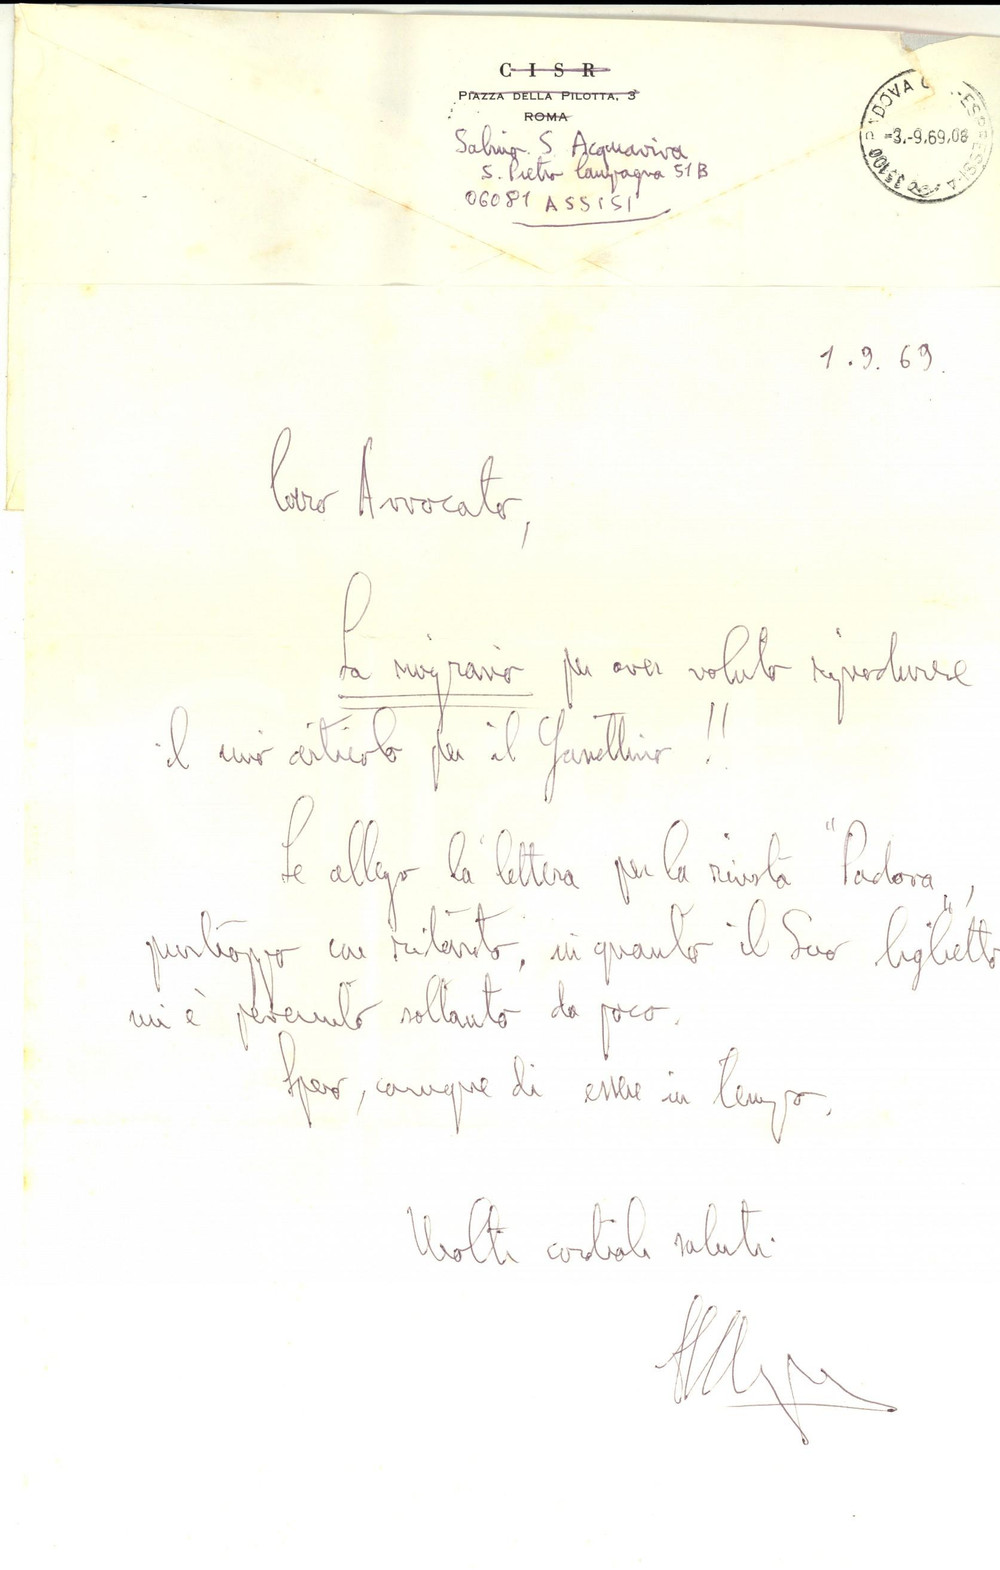 C I S R
PIAZZA DELLA PILOTTA, 3
ROMA
Sabino S. Acquaviva
S. Pietro Campagna 51B
06081 ASSISI
PADOVA ESPRESSI
-3.-9.69.08
35100
1.9.69.
Caro Avvocato,
La ringrazio per aver voluto riprodurre
il mio articolo per il Gazzettino!!
Le allego la lettera per la rivista "Padova",
purtroppo con ritardo, in quanto il Suo biglietto
mi è pervenuto soltanto da poco.
Spero, comunque di essere in tempo.
Molti cordiali saluti